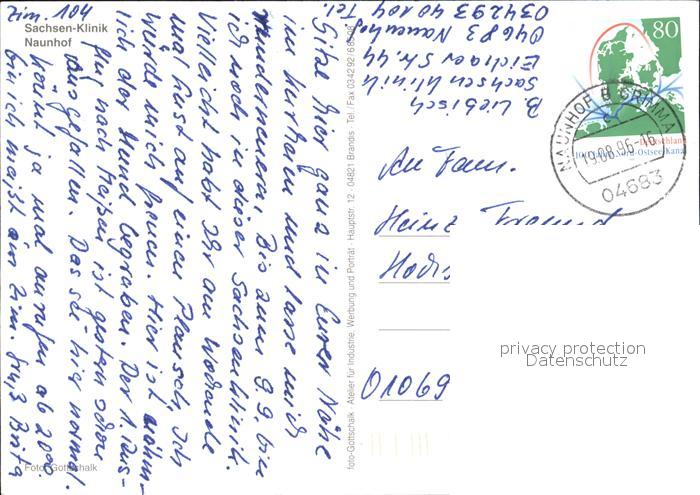 Zim. 104
Sachsen-Klinik
Naunhof
Sitze hier ganz in Eurer Nähe
im Kurheim und lasse mich
Bis zum 9.9. bin
ich noch in dieser Sachsenklinik.
Vielleicht habt Ihr am Wochende
mal Lust auf einen Plausch, ich
würde mich freun. Hier ist nähm-
lich der Hund begraben. Der 1. Aus-
flug nach Meißen ist gestern schon
ausgefallen. Das sei hier normal.
Könnt ja mal anrufen ab 20⁰⁰
bin ich meist im Zim. Gruß Brita
Foto: Gottschalk
foto-Gottschalk · Atelier für Industrie, Werbung und Porträt · Hauptstr. 12 · 04821 Brandis · Tel. / Fax 034292/68
B. Liebisch
Sachsenklinik
Eichaer Str. 44
04683 Naunhof
034293 40104 Tel.
80
Deutschland
Nord-Ostsee-Kanal
NAUNHOF B GRIMMA
19.08.96-16
04683
An Fam.
Heinz Freund
01069
privacy protection
Datenschutz